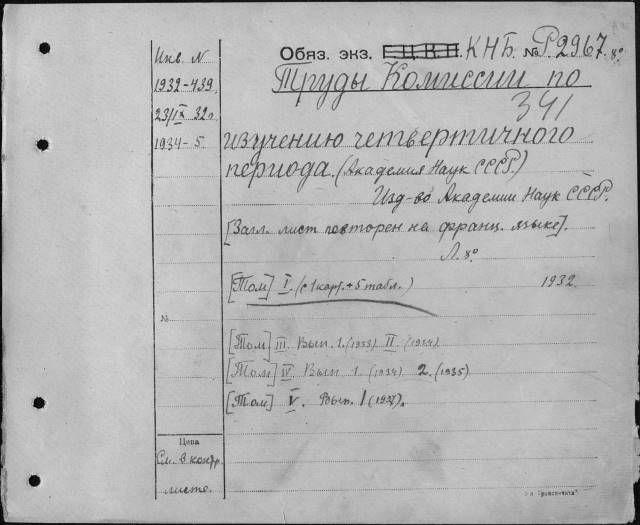 Инв. N
1932-439
23/IX 32г.
1934-5
Обяз. экз. Г.Ц.К.П. КНБ. № Р2967. 8°
Труды Комиссии по
341
изучению четвертичного
периода. (Академия Наук СССР.)
Изд-во Академии Наук СССР.
[Загл. лист повторен на франц. языке].
Л. 8°
[Том] I. (с 1 карт. + 5 табл.) 1932.
№
[Том] III. Вып. 1. (1933) II. (1934)
[Том] IV Вып 1 (1934) 2. (1935)
[Том] V. Вып. 1 (1937).
Цена
См. в контр.
листе.